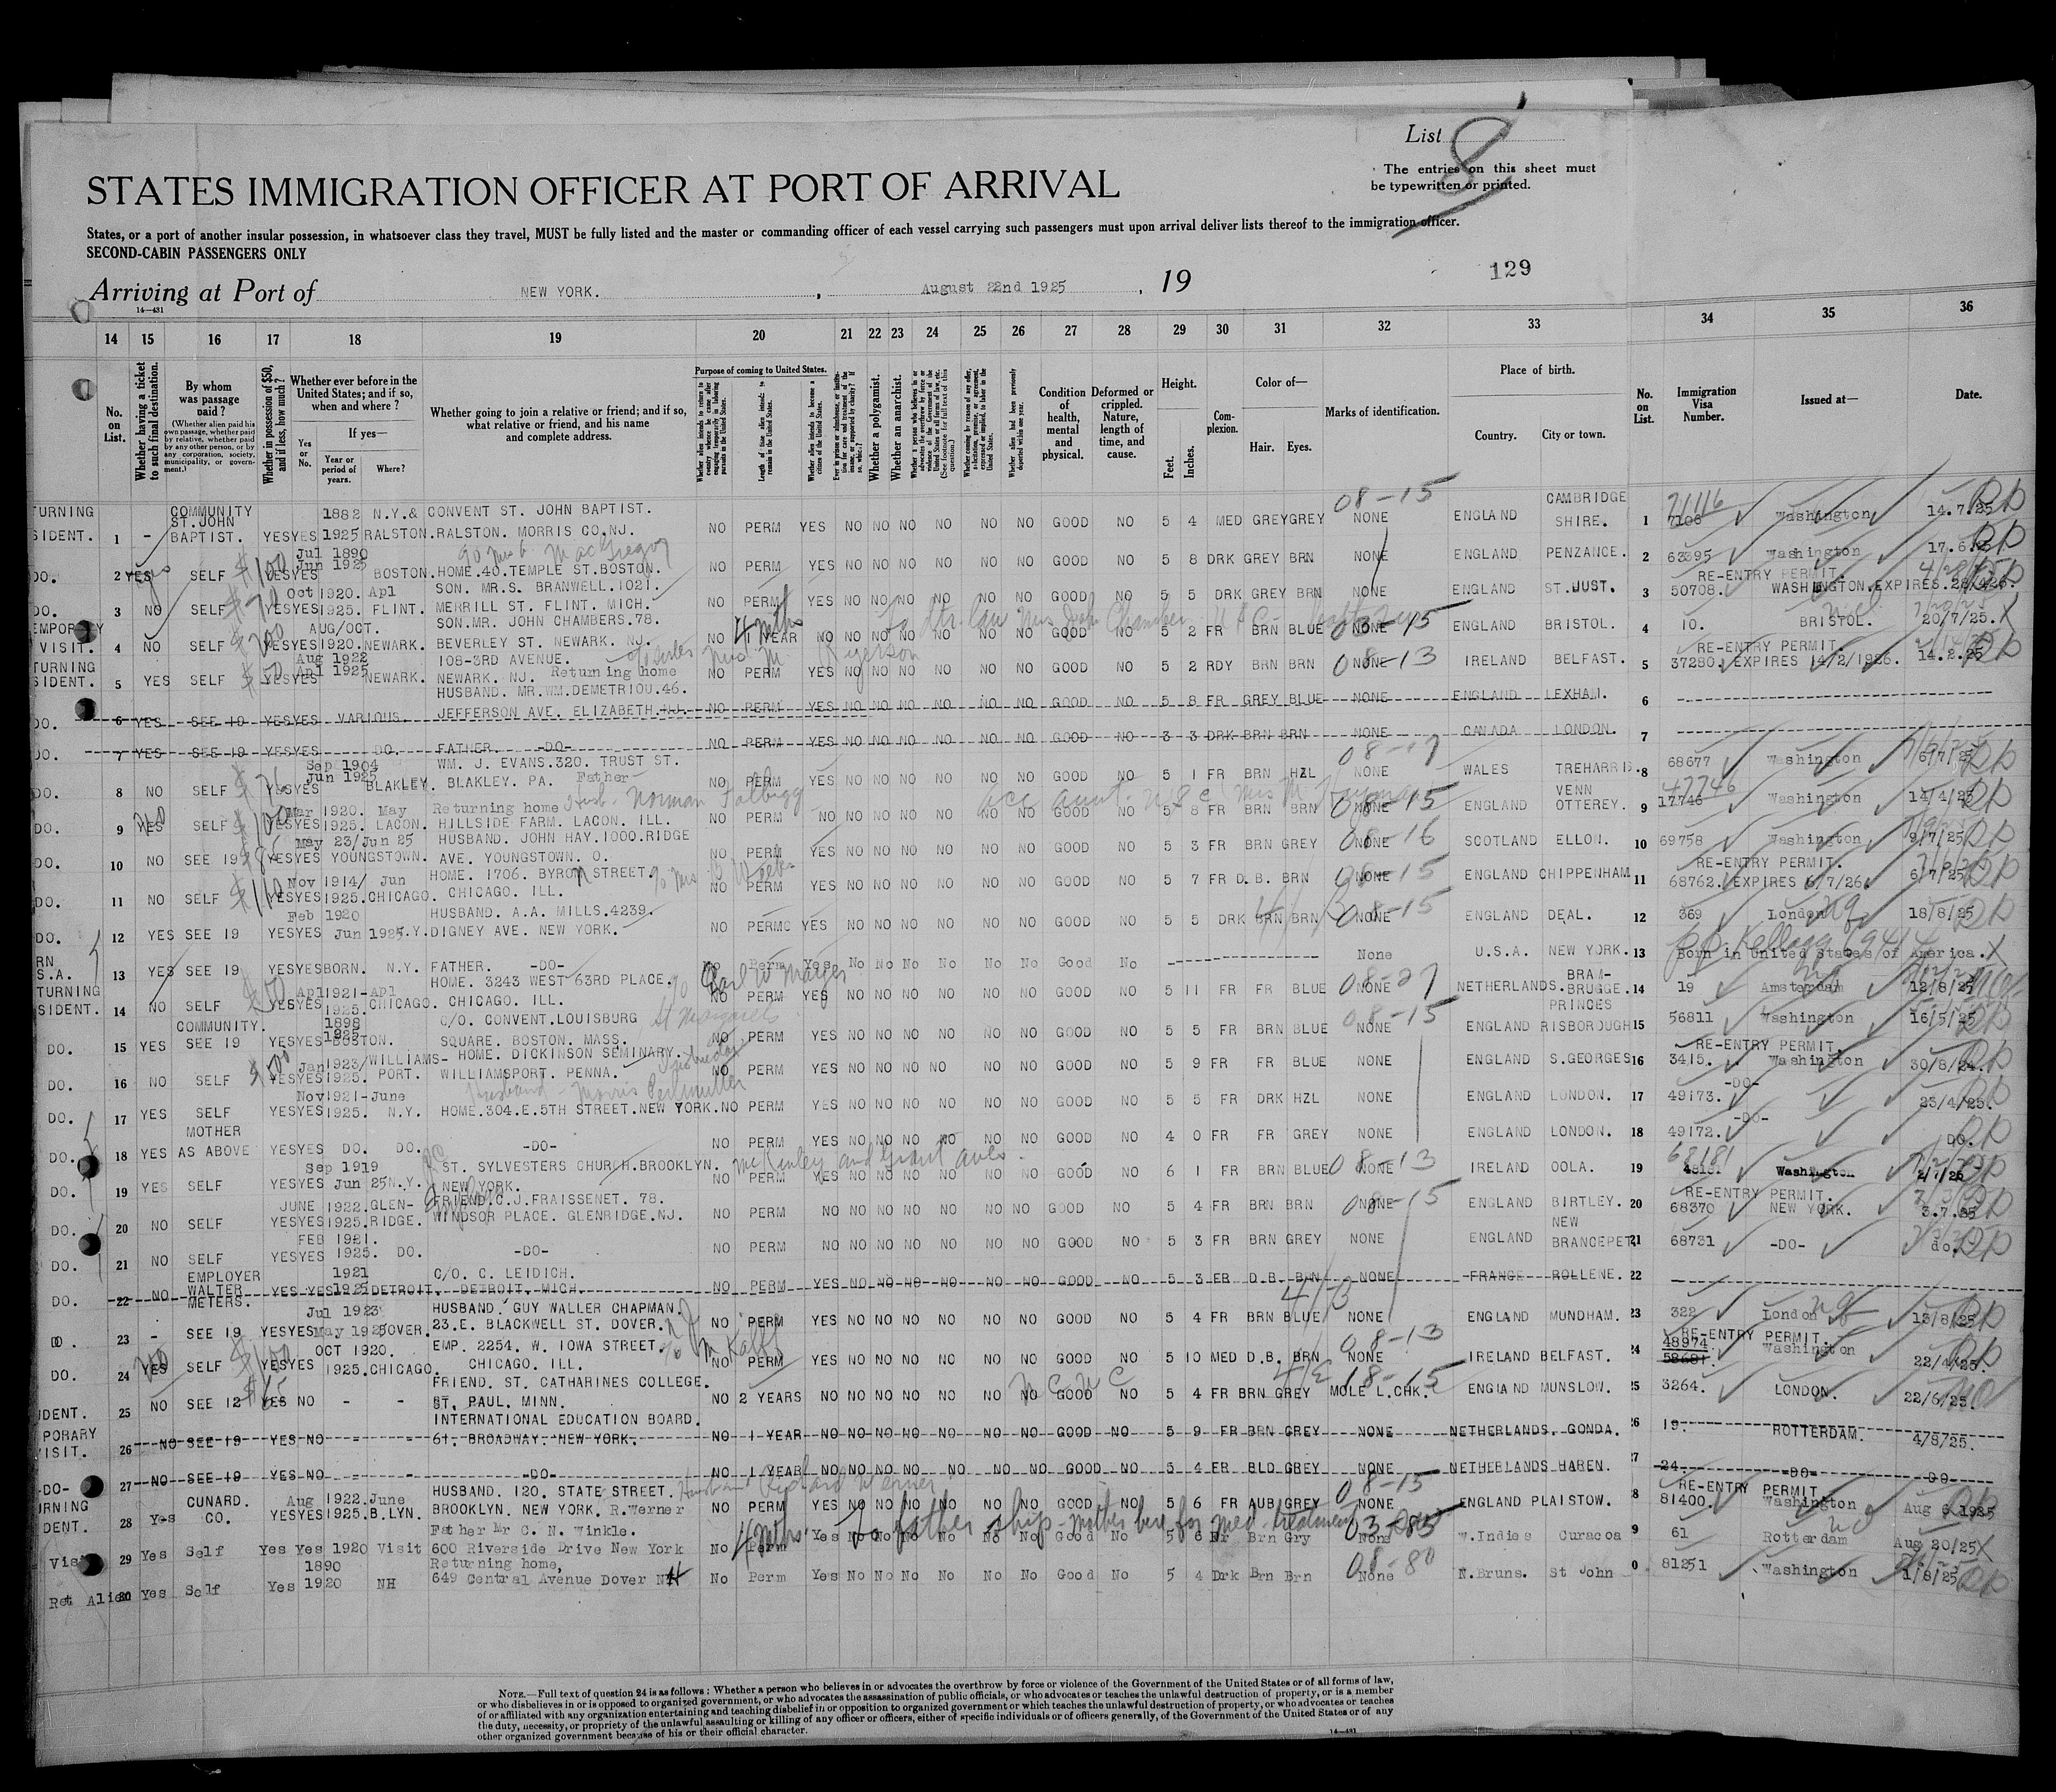 List 8
The entries on this sheet must
be typewritten or printed.
STATES IMMIGRATION OFFICER AT PORT OF ARRIVAL
States, or a port of another insular possession, in whatsoever class they travel, MUST be fully listed and the master or commanding officer of each vessel carrying such passengers must upon arrival deliver lists thereof to the immigration officer.
SECOND-CABIN PASSENGERS ONLY
129
Arriving at Port of NEW YORK. , August 22nd 1925 , 19
14—431
14 15 16 17 18 19 20 21 22 23 24 25 26 27 28 29 30 31 32 33 34 35 36
No. on List.
Whether having a ticket to such final destination.
By whom was passage paid?
(Whether alien paid his own passage, whether paid by relative, whether paid by any other person, or by any corporation, society, municipality, or government.)
Whether in possession of $50, and if less, how much?
Whether ever before in the United States; and if so, when and where?
Yes or No.
If yes—
Year or period of years.
Where?
Whether going to join a relative or friend; and if so, what relative or friend, and his name and complete address.
Purpose of coming to United States.
Length of time alien intends to remain in the United States.
Whether alien intends to become a citizen of the United States.
Whether a polygamist.
Whether an anarchist.
Condition of health, mental and physical.
Deformed or crippled. Nature, length of time, and cause.
Height.
Feet. Inches.
Complexion.
Color of—
Hair. Eyes.
Marks of identification.
Place of birth.
Country. City or town.
No. on List.
Immigration Visa Number.
Issued at—
Date.
TURNING COMMUNITY 1882 N.Y.& CONVENT ST. JOHN BAPTIST. 08-15 CAMBRIDGE 71116
SIDENT. 1 - ST.JOHN BAPTIST. YES YES 1925 RALSTON. RALSTON. MORRIS CO.NJ. NO PERM YES NO NO NO NO NO NO GOOD NO 5 4 MED GREY GREY NONE ENGLAND SHIRE. 1 Washington 14.7.25
Jul 1890
DO. 2 YES SELF $100 YES YES Jun 1925 BOSTON. HOME.40.TEMPLE ST.BOSTON. NO PERM YES NO NO NO NO NO NO GOOD NO 5 8 DRK GREY BRN NONE ENGLAND PENZANCE. 2 63395 Washington 17.6.25
Oct 1920. Apl SON. MR.S. BRANWELL.1021. RE-ENTRY PERMIT.
DO. 3 NO SELF $70 YES YES 1925. FLINT. MERRILL ST. FLINT. MICH. NO PERM YES NO NO NO NO NO NO GOOD NO 5 5 DRK GREY BRN NONE ENGLAND ST.JUST. 3 50708. WASHINGTON.EXPIRES.28/4/26.
EMPORARY AUG/OCT. SON.MR. JOHN CHAMBERS.78. 4 mths 03-15
VISIT. 4 NO SELF $200 YES YES 1920. NEWARK. BEVERLEY ST. NEWARK. NJ. NO 1 YEAR NO NO NO NO NO NO NO GOOD NO 5 2 FR BRN BLUE NONE ENGLAND BRISTOL. 4 10. BRISTOL. 20/7/25.
TURNING Aug 1922 108-3RD AVENUE. 08-13 RE-ENTRY PERMIT.
SIDENT. 5 YES SELF $50 YES YES Apl 1925 NEWARK. NEWARK. NJ. Returning home NO PERM YES NO NO NO NO NO NO GOOD NO 5 2 RDY BRN BRN NONE IRELAND BELFAST. 5 37280. EXPIRES 14/2/1926. 14.2.25
HUSBAND. MR.WM.DEMETRIOU.46.
DO. 6 YES SEE 19 YES YES VARIOUS. JEFFERSON AVE. ELIZABETH.NJ. NO PERM YES NO NO NO NO NO NO GOOD NO 5 8 FR GREY BLUE NONE ENGLAND LEXHAM. 6
DO. 7 YES SEE 19 YES YES DO. FATHER. -DO- NO PERM YES NO NO NO NO NO NO GOOD NO 3 3 DRK BRN BRN NONE CANADA LONDON. 7
Sep 1904 WM. J. EVANS.320. TRUST ST. 08-17
DO. 8 NO SELF YES YES Jun 1925 BLAKLEY. BLAKLEY. PA. Father NO PERM YES NO NO NO NO NO NO GOOD NO 5 1 FR BRN HZL NONE WALES TREHARRIS. 8 68677 Washington
Mar 1920. May Returning home Husb. Norman 08-15 VENN 47746
DO. 9 YES SELF YES YES 1925. LACON. HILLSIDE FARM. LACON. ILL. NO PERM NO NO NO NO NO NO NO GOOD NO 5 8 FR BRN BRN NONE ENGLAND OTTEREY. 9 17746 Washington 14/4/25
May 23/Jun 25 HUSBAND. JOHN HAY.1000.RIDGE 08-16
DO. 10 NO SEE 19 YES YES YOUNGSTOWN. AVE. YOUNGSTOWN. O. NO PERM YES NO NO NO NO NO NO GOOD NO 5 3 FR BRN GREY NONE SCOTLAND ELLON. 10 69758 Washington 9/7/25
Nov 1914/ Jun HOME. 1706. BYRON STREET. 08-15 RE-ENTRY PERMIT.
DO. 11 NO SELF $110 YES YES 1925. CHICAGO. CHICAGO. ILL. NO PERM YES NO NO NO NO NO NO GOOD NO 5 7 FR D.B. BRN NONE ENGLAND CHIPPENHAM 11 68762. EXPIRES 6/7/26. 6/7/25
Feb 1920 HUSBAND. A.A. MILLS.4239. 08-15
DO. 12 YES SEE 19 YES YES Jun 1925 N.Y. DIGNEY AVE. NEW YORK. NO PERMC YES NO NO NO NO NO NO GOOD NO 5 5 DRK BRN BRN NONE ENGLAND DEAL. 12 369 London 18/8/25
RN S.A. 13 YES SEE 19 YES YES BORN. N.Y. FATHER. -DO- No Perm Yes No No No No No No Good No None U.S.A. NEW YORK. 13 Born in United States of America.
TURNING Apl 1921-Apl HOME. 3243 WEST 63RD PLACE. 08-27 BRAM-
SIDENT. 14 NO SELF $50 YES YES 1925. CHICAGO. CHICAGO. ILL. NO PERM YES NO NO NO NO NO NO GOOD NO 5 11 FR FR BLUE NONE NETHERLANDS. BRUGGE. 14 19 Amsterdam 12/8/25
COMMUNITY. 1898 C/O. CONVENT.LOUISBURG St Margarets 08-15 PRINCES
DO. 15 YES SEE 19 YES YES 1925. BOSTON. SQUARE. BOSTON. MASS. NO PERM YES NO NO NO NO NO NO GOOD NO 5 5 FR BRN BLUE NONE ENGLAND RISBOROUGH 15 56811 Washington 16/5/25
Jan 1923/ WILLIAMS- HOME. DICKINSON SEMINARY. RE-ENTRY PERMIT.
DO. 16 NO SELF YES YES 1925. PORT. WILLIAMSPORT. PENNA. NO PERM YES NO NO NO NO NO NO GOOD NO 5 9 FR FR BLUE NONE ENGLAND S.GEORGES 16 3415. Washington 30/8/24.
Nov 1921-June Husband - Morris -DO-
DO. 17 YES SELF YES YES 1925. N.Y. HOME.304.E.5TH STREET.NEW YORK. NO PERM YES NO NO NO NO NO NO GOOD NO 5 5 FR DRK HZL NONE ENGLAND LONDON. 17 49173. 23/4/25.
MOTHER -DO-
DO. 18 YES AS ABOVE YES YES DO. DO. -DO- NO PERM YES NO NO NO NO NO NO GOOD NO 4 0 FR FR GREY NONE ENGLAND LONDON. 18 49172. DO.
Sep 1919 ST. SYLVESTERS CHURCH.BROOKLYN. McKinley and Grant Aves. 08-13 68181
DO. 19 YES SELF YES YES Jun 25 N.Y. NEW YORK. NO PERM YES NO NO NO NO NO NO GOOD NO 6 1 FR BRN BLUE NONE IRELAND OOLA. 19 Washington 2/7/25
JUNE 1922. GLEN- FRIEND.C.J.FRAISSENET. 78. 08-15 RE-ENTRY PERMIT.
DO. 20 NO SELF YES YES 1925. RIDGE. WINDSOR PLACE. GLENRIDGE.NJ. NO PERM NO NO NO NO NO NO NO GOOD NO 5 4 FR BRN BRN NONE ENGLAND BIRTLEY. 20 68370 NEW YORK. 3.7.25
FEB 1921. NEW
DO. 21 NO SELF YES YES 1925. DO. -DO- NO PERM NO NO NO NO NO NO NO GOOD NO 5 3 FR BRN GREY NONE ENGLAND BRANCEPET. 21 68731 -DO- do.
EMPLOYER 1921 C/O. C. LEIDICH.
DO. 22 NO WALTER METERS. YES YES 1925 DETROIT. DETROIT. MICH. NO PERM YES NO NO NO NO NO NO GOOD NO 5 3 FR D.B. BRN NONE FRANCE ROLLENE. 22
Jul 1923 HUSBAND. GUY WALLER CHAPMAN.
DO. 23 - SEE 19 YES YES May 1925 DOVER. 23.E. BLACKWELL ST. DOVER. NO PERM YES NO NO NO NO NO NO GOOD NO 5 4 FR BRN BLUE NONE ENGLAND MUNDHAM. 23 322 London 13/8/25
OCT 1920. EMP. 2254. W. IOWA STREET. 08-13 48974 RE-ENTRY PERMIT.
DO. 24 YES SELF $100 YES YES 1925. CHICAGO. CHICAGO. ILL. NO PERM YES NO NO NO NO NO NO GOOD NO 5 10 MED D.B. BRN NONE IRELAND BELFAST. 24 Washington 22/4/25.
FRIEND. ST. CATHARINES COLLEGE. 18-15
IDENT. 25 NO SEE 12 YES NO - - ST. PAUL. MINN. NO 2 YEARS NO NO NO NO NO NO NO GOOD NO 5 4 FR BRN GREY MOLE L.CHK. ENGLAND MUNSLOW. 25 3264. LONDON. 22/6/25.
PORARY INTERNATIONAL EDUCATION BOARD.
VISIT. 26 NO SEE 19 YES NO - - 61. BROADWAY. NEW YORK. NO 1 YEAR NO NO NO NO NO NO NO GOOD NO 5 9 FR BRN GREY NONE NETHERLANDS. GONDA. 26 19. ROTTERDAM. 4/8/25.
-DO- 27 NO SEE 19 YES NO - - -DO- NO 1 YEAR NO NO NO NO NO NO NO GOOD NO 5 4 FR BLD GREY NONE NETHERLANDS HAREN. 27 24. -DO- DO
URNING CUNARD. Aug 1922. June HUSBAND. 120. STATE STREET. Husband Richard Werner 08-15 RE-ENTRY PERMIT
DENT. 28 Yes CO. YES YES 1925. B.LYN. BROOKLYN. NEW YORK. R.Werner NO PERM YES NO NO NO NO NO NO GOOD NO 5 6 FR AUB GREY NONE ENGLAND PLAISTOW. 28 81400. Washington Aug 6 1925
Father Mr C. N. Winkle. 4 mths. To father ship - mother here for med. treatment 03-
Visi 29 Yes Self Yes Yes 1920 Visit 600 Riverside Drive New York No Perm Yes No No No No No No Good No 5 6 Brn Gry None W.Indies Curacoa 29 61 Rotterdam Aug 20/25
1890 Returning home, 08-80
Ret Alien 30 Yes Self Yes 1920 NH 649 Central Avenue Dover NH No Perm Yes No No No No No No Good No 5 4 Drk Brn Brn None N.Bruns. St John 30 81251 Washington 1/8/25
NOTE.—Full text of question 24 is as follows: Whether a person who believes in or advocates the overthrow by force or violence of the Government of the United States or of all forms of law,
or who disbelieves in or is opposed to organized government, or who advocates the assassination of public officials, or who advocates or teaches the unlawful destruction of property, or is a member
of or affiliated with any organization entertaining and teaching disbelief in or opposition to organized government or which teaches the unlawful destruction of property, or who advocates or teaches
the duty, necessity, or propriety of the unlawful assaulting or killing of any officer or officers, either of specific individuals or of officers generally, of the Government of the United States or of any
other organized government because of his or their official character.
14—431